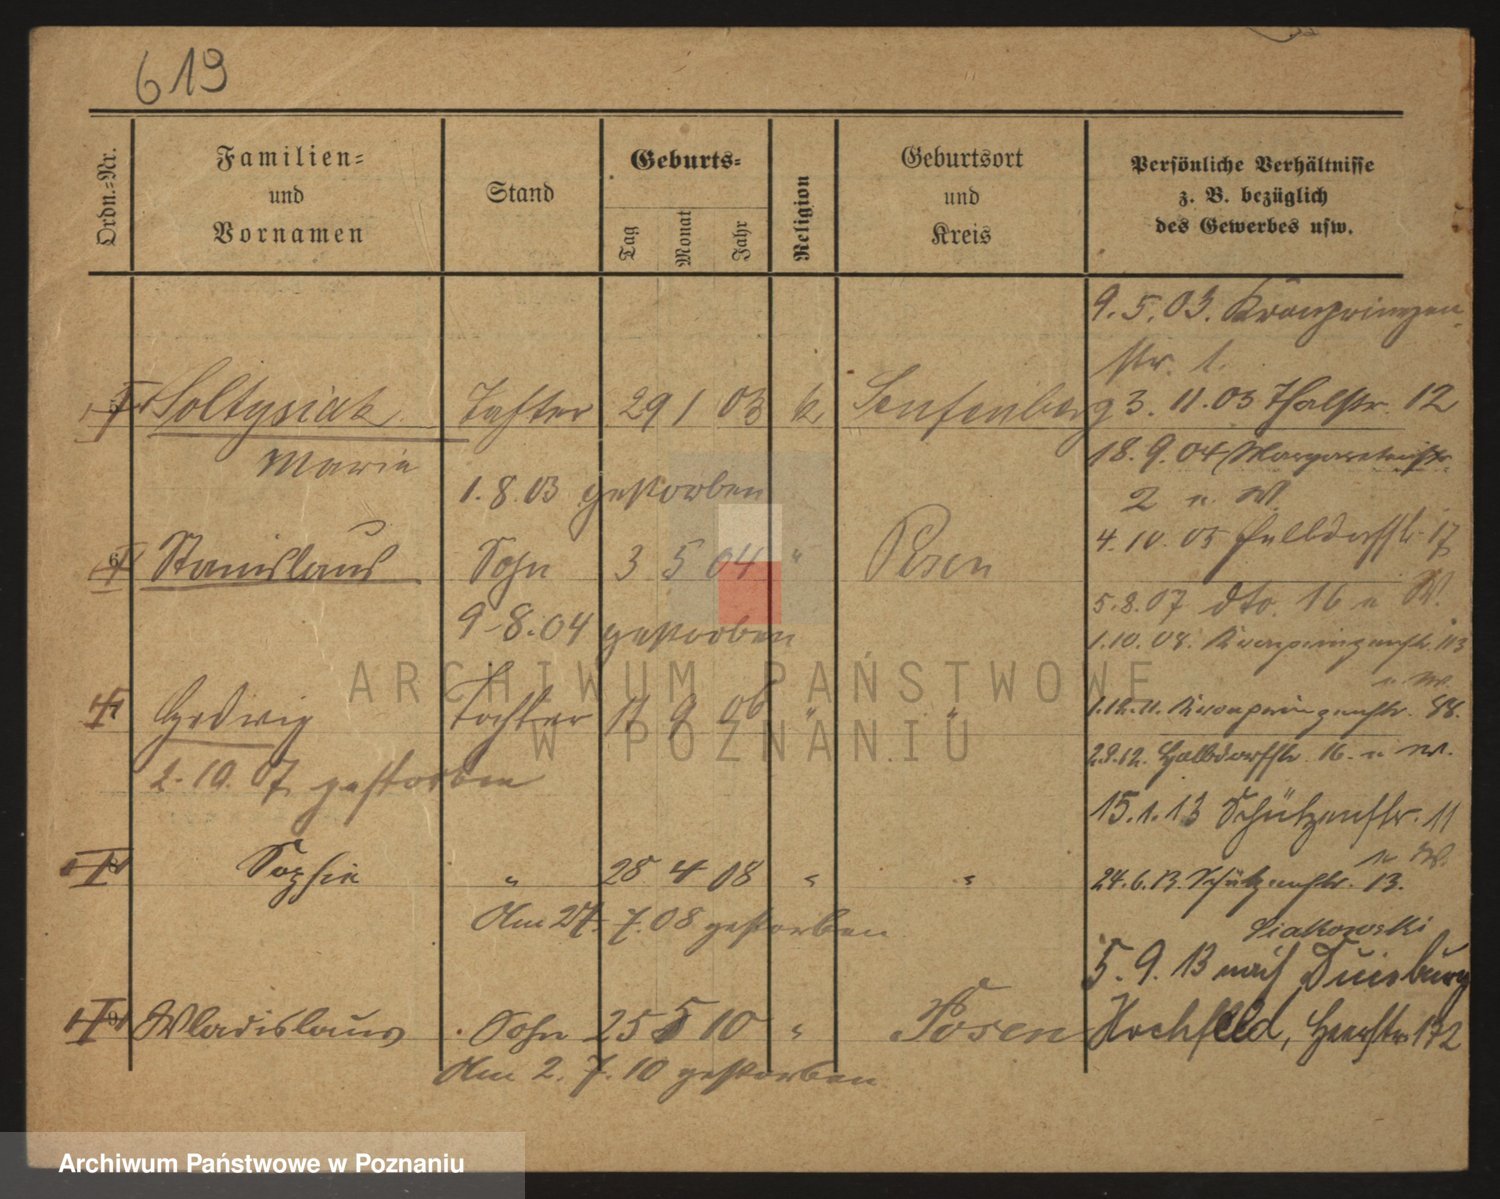 619
Ordn.-Nr.
Familien-
und
Vornamen
Stand
Geburts-
Tag
Monat
Jahr
Religion
Geburtsort
und
Kreis
Persönliche Verhältnisse
z. B. bezüglich
des Gewerbes usw.
9.5.03. Kronprinzen
str. 1.
Soltysiak Tochter 29 1 03 k. Senftenberg
3. 11. 03 Thalstr. 12
Marie
18. 9. 04 Margaretenstr.
1. 8. 03 gestorben
2 u. W.
6 Stanislaus Sohn 3 5 04 " Posen
4. 10. 05 Halbdorfstr. 17
5. 8. 07 dto. 16 u W.
9-8.04 gestorben
1. 10. 08. Kronprinzenstr. 113
u. W.
Hedwig Tochter 11 9 06 " "
1.12.11. Kronprinzenstr. 88.
2.9.12. Halbdorfstr. 16. u W.
2. 10. 07 gestorben
15. 1. 13 Schützenstr. 11
u W.
8 Sophie " 28 4 08 " "
24. 6. 13. Schützenstr. 13.
Am 27. 7. 08 gestorben
Siakowski
5. 9. 13 nach Duisburg
9 Wladislaus Sohn 25 5 10 " Posen
Hochfeld, Heerstr. 172
Am 2. 7. 10 gestorben
ARCHIWUM PAŃSTWOWE
W POZNANIU
Archiwum Państwowe w Poznaniu